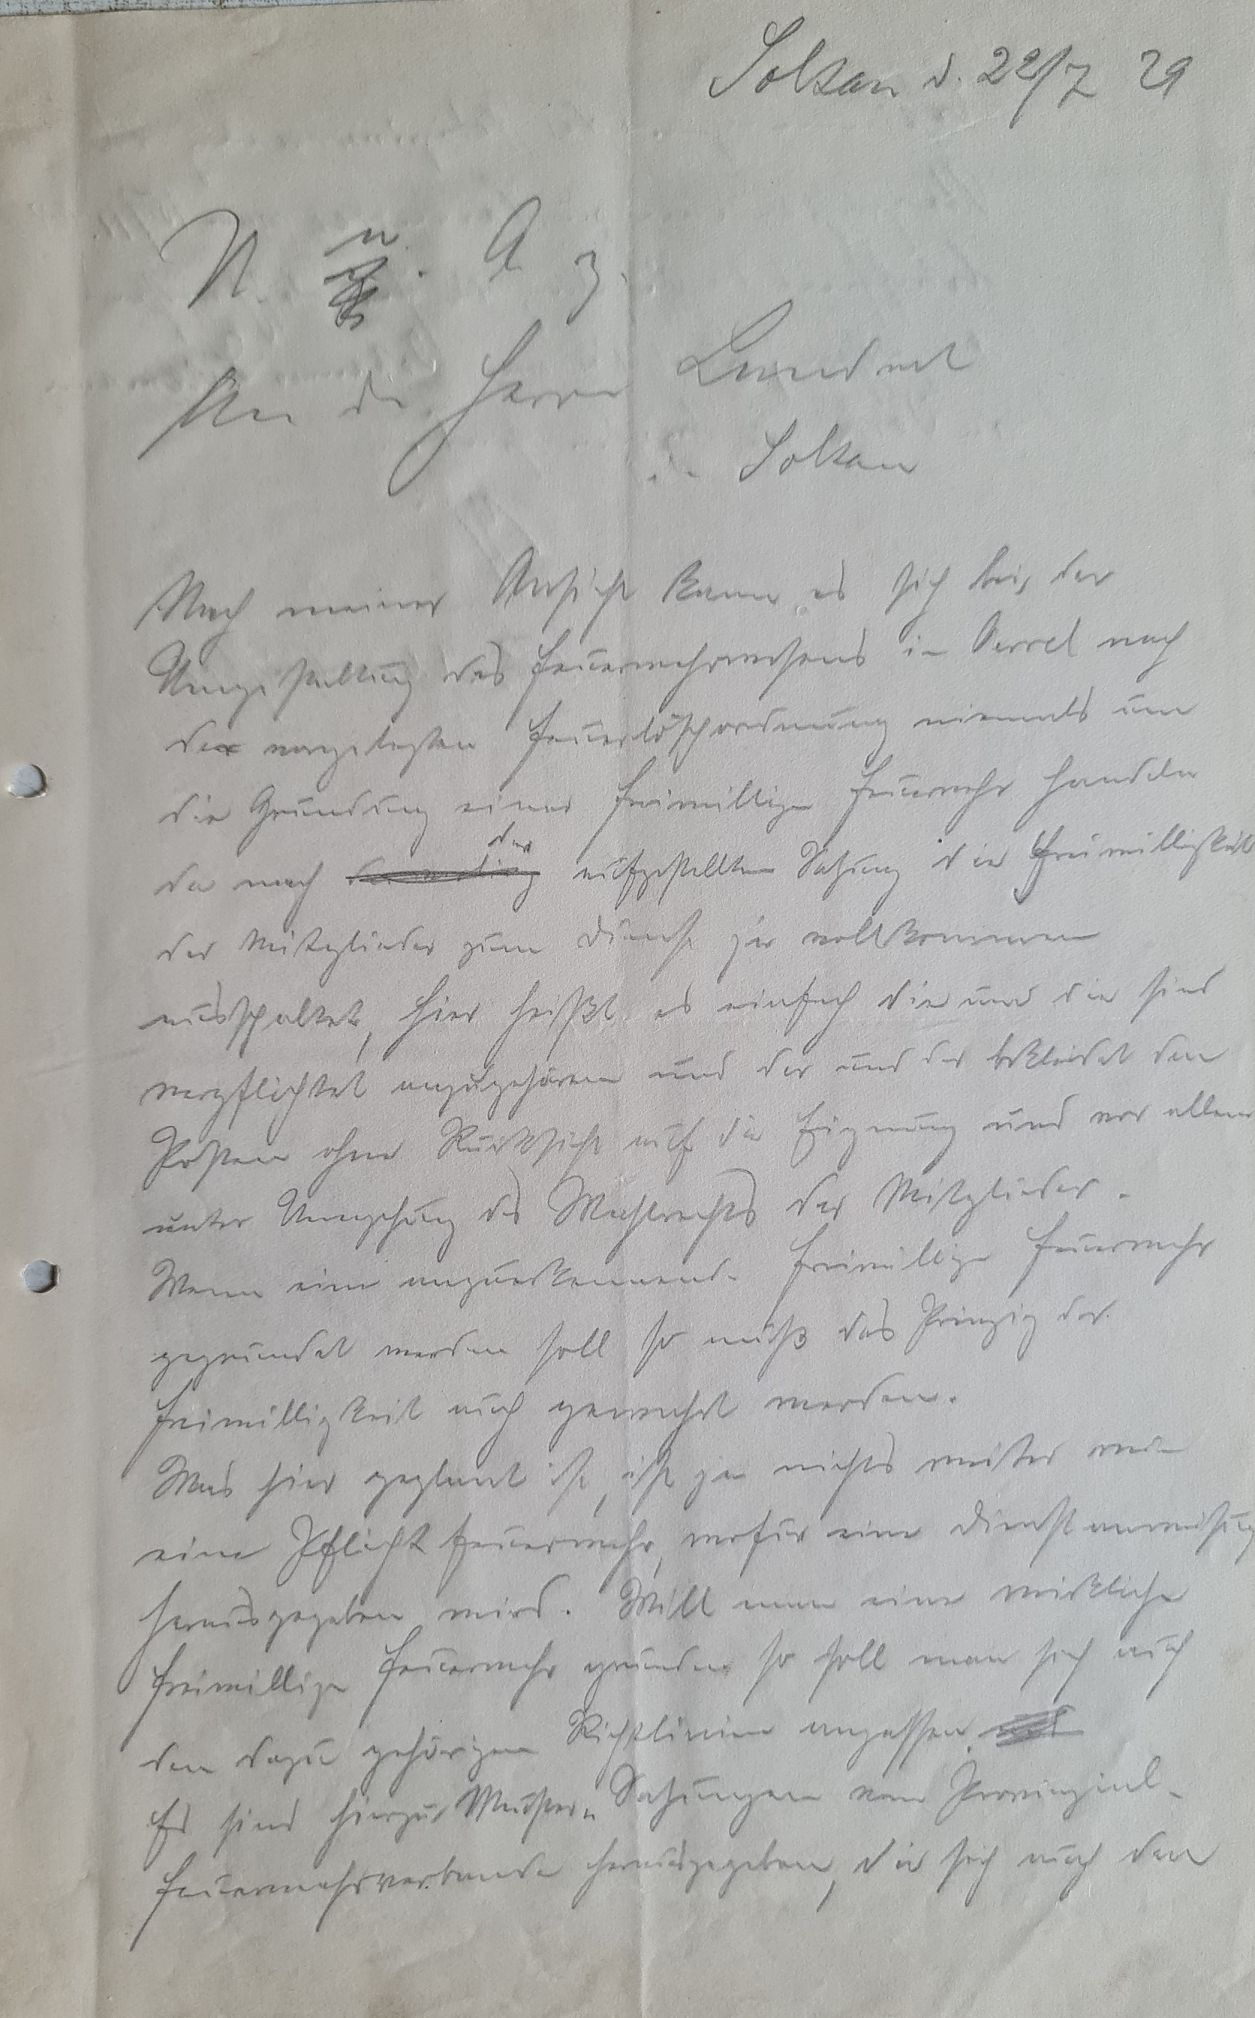 Soltau d. 22/7 29
N. u. A. 3.
An den Herrn Landrat
in Soltau
Nach meiner Ansicht kann es sich bei der
Umgestaltung des Feuerwehrwesens in Oerrel nach
der vorgelegten Feuerlöschordnung niemals um
die Gründung einer freiwilligen Feuerwehr handeln
da nach der aufgestellten Satzung die Freiwilligkeit
der Mitglieder zum Dienst ja vollkommen
ausschaltet, hier heißt es einfach die und die sind
verpflichtet anzugehören und der und der bekleidet den
Posten ohne Rücksicht auf die Eignung und vor allem
unter Umgehung des Wahlrechts der Mitglieder.
Wenn eine anzuerkennende freiwillige Feuerwehr
gegründet werden soll so muß das Prinzip der
Freiwilligkeit auch gewahrt werden.
Was hier geplant ist, ist ja nichts weiter wie
eine Pflichtfeuerwehr, wofür eine Dienstanweisung
herausgegeben wird. Will man eine wirkliche
freiwillige Feuerwehr gründen so soll man sich auch
den dazu gehörigen Richtlinien anpassen.
Es sind hierzu Muster-Satzungen vom Provinzial-
feuerwehrverbande herausgegeben, die sich auch den